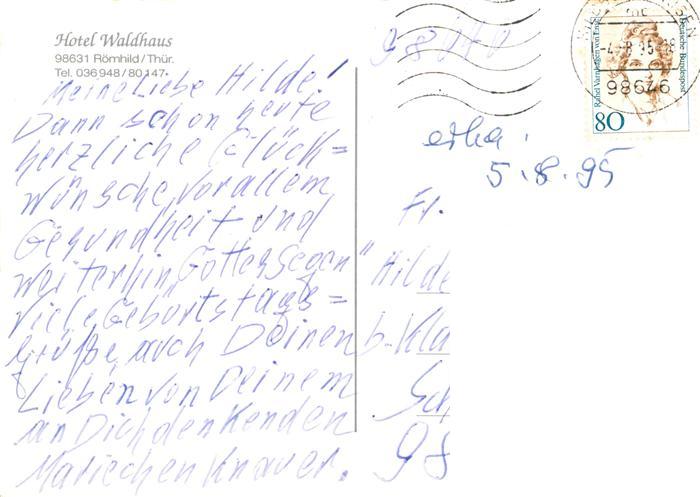 Hotel Waldhaus
98631 Römhild / Thür.
Tel. 036 948 / 80 147
Meine Liebe Hilde!
Dann schon heute
herzliche Glück=
wünsche, vor allem
Gesundheit und
weiterhin „Gottes Segen"
viele Geburtstags=
grüße, auch Deinen
Lieben von Deinem
an Dich denkenden
Mariechen Knauer.
98646
Deutsche Bundespost
Rahel Varnhagen von Ense
80
5.8.95
Fr.
Hilde
98